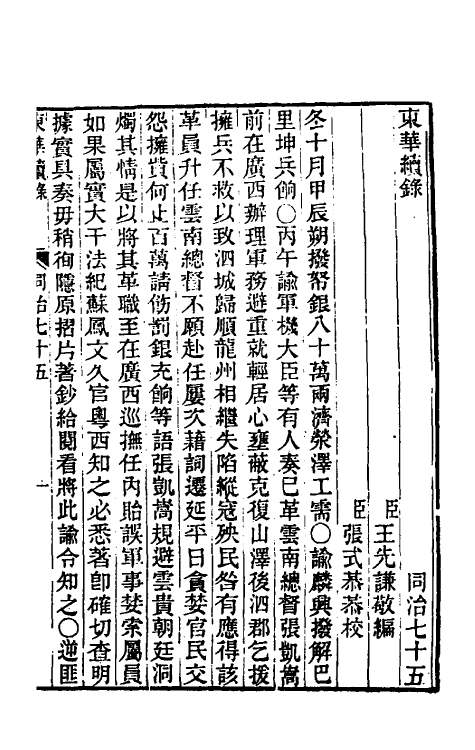 東華續錄
同治七十五
臣王先謙敬編
臣張式恭恭校
冬十月甲辰朔撥帑銀八十萬兩濟滎澤工需○諭麟興撥解巴
里坤兵餉○丙午諭軍機大臣等有人奏已革雲南總督張凱嵩
前在廣西辦理軍務避重就輕居心壅蔽克復山澤後泗郡乞援
擁兵不救以致泗城歸順龍州相繼失陷縱寇殃民咎有應得該
革員升任雲南總督不願赴任屢次藉詞遷延平日貪婪官民交
怨擁貲何止百萬請飭罰銀充餉等語張凱嵩規避雲貴朝廷洞
燭其情是以將其革職至在廣西巡撫任內貽誤軍事婪索屬員
如果屬實大干法紀蘇鳳文久官粵西知之必悉著卽確切查明
據實具奏毋稍徇隱原摺片著鈔給閱看將此諭令知之○逆匪
東華續錄
同治七十五
一